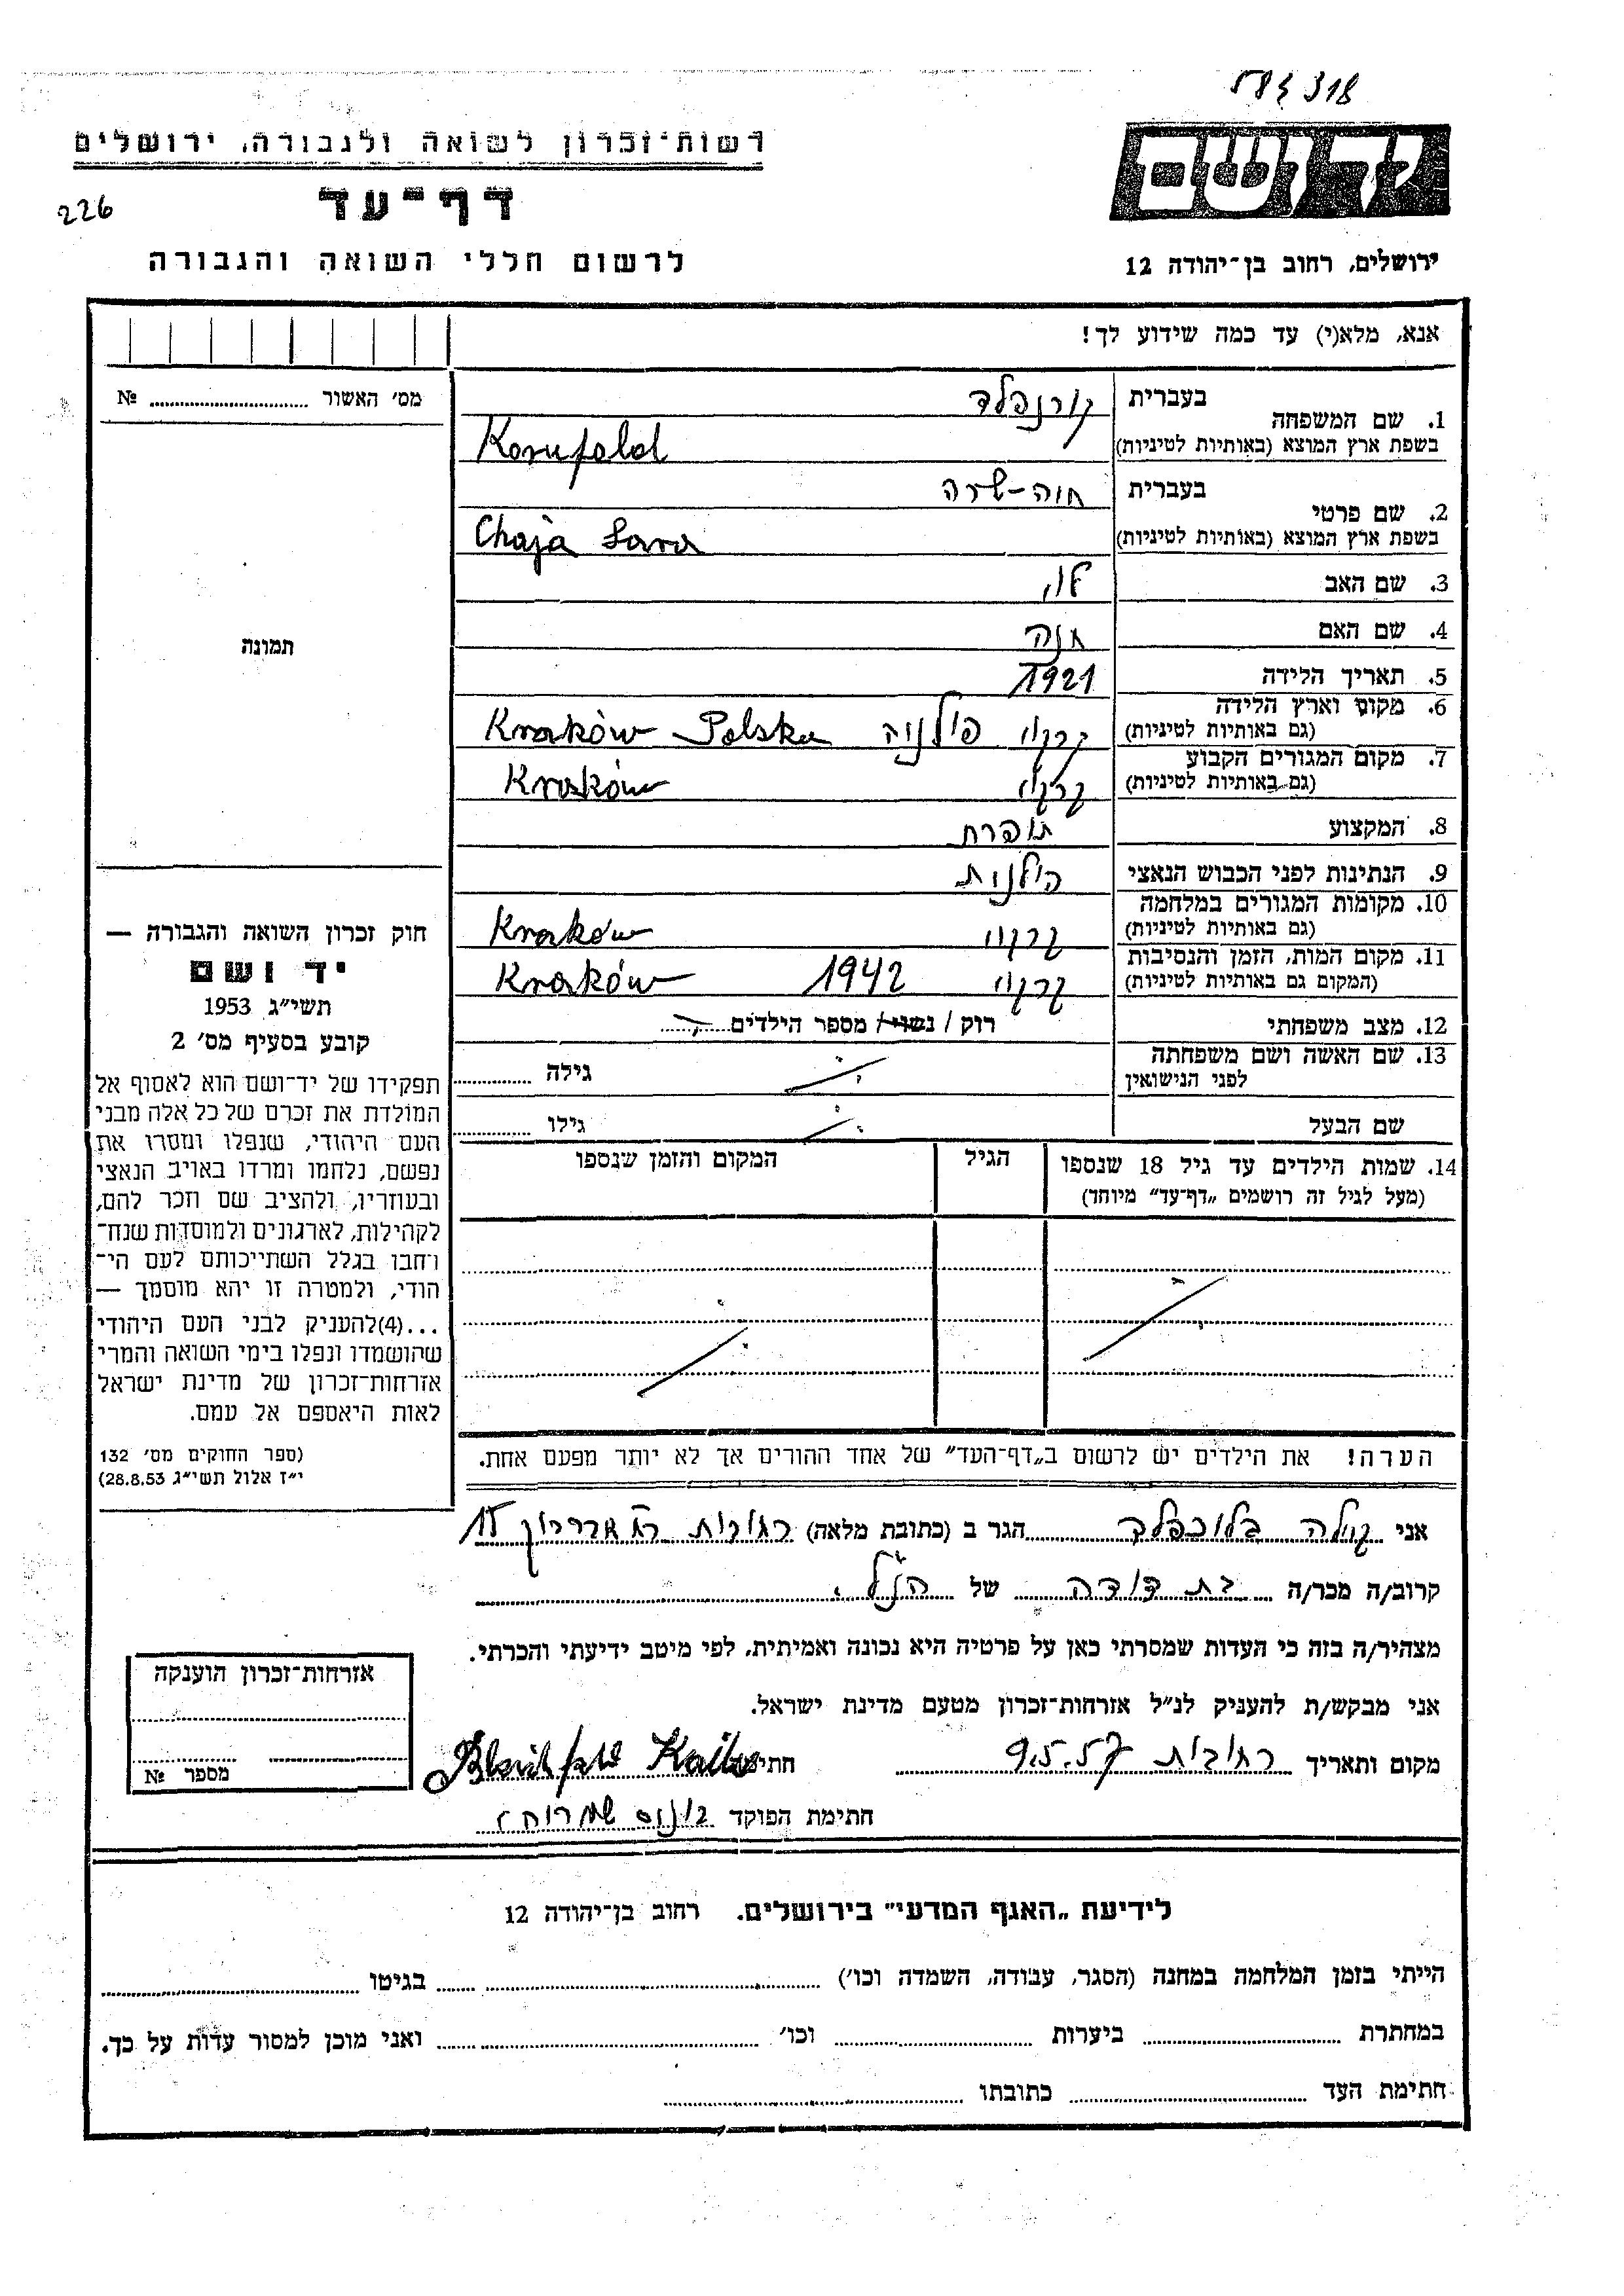 318
רשות־זכרון לשואה ולגבורה, ירושלים
ידושם
226
דף־עד
לרשום חללי השואה והגבורה
ירושלים, רחוב בן־יהודה 12
אנא, מלא(י) עד כמה שידוע לך!
מס׳ האשור № 
1. שם המשפחה
בעברית קורנפלד
בשפת ארץ המוצא (באותיות לטיניות) Kornfeld
2. שם פרטי
בעברית חוה-שרה
בשפת ארץ המוצא (באותיות לטיניות) Chaja Sara
3. שם האב
4. שם האם חנה
5. תאריך הלידה 1921
6. מקום וארץ הלידה
(גם באותיות לטיניות) קרקוי פולניה Kraków Polska
7. מקום המגורים הקבוע
(גם באותיות לטיניות) קרקוי Kraków
8. המקצוע תופרת
9. הנתינות לפני הכבוש הנאצי פולנית
10. מקומות המגורים במלחמה
(גם באותיות לטיניות) קרקוי Kraków
11. מקום המות, הזמן והנסיבות
(המקום גם באותיות לטיניות) קרקוי 1942 Kraków
12. מצב משפחתי רוק / נשוי / מספר הילדים
13. שם האשה ושם משפחתה
לפני הנישואין גילה
שם הבעל גילו
14. שמות הילדים עד גיל 18 שנספו
(מעל לגיל זה רושמים „דף־עד" מיוחד)
הגיל
המקום והזמן שנספו
הערה! את הילדים יש לרשום ב„דף־העד" של אחד ההורים אך לא יותר מפעם אחת.
תמונה
חוק זכרון השואה והגבורה —
יד ושם
תשי״ג 1953
קובע בסעיף מס׳ 2
תפקידו של יד־ושם הוא לאסוף אל
המולדת את זכרם של כל אלה מבני
העם היהודי, שנפלו ומסרו את
נפשם, נלחמו ומרדו באויב הנאצי
ובעוזריו, ולהציב שם וזכר להם,
לקהילות, לארגונים ולמוסדות שנח־
רחבו בגלל השתייכותם לעם הי־
הודי, ולמטרה זו יהא מוסמך —
...(4)להעניק לבני העם היהודי
שהושמדו ונפלו בימי השואה והמרי
אזרחות־זכרון של מדינת ישראל
לאות היאספם אל עמם.
(ספר החוקים מס׳ 132
י״ז אלול תשי״ג 28.8.53)
אני קילה בלוכפלד הגר ב (כתובת מלאה) רחובות 15
קרוב/ה מכר/ה בת דודה של הנ״ל.
מצהיר/ה בזה כי העדות שמסרתי כאן על פרטיה היא נכונה ואמיתית, לפי מיטב ידיעתי והכרתי.
אני מבקש/ת להעניק לנ״ל אזרחות־זכרון מטעם מדינת ישראל.
מקום ותאריך רחובות 9.5.57 חתימה
חתימת הפוקד
אזרחות־זכרון הוענקה
מספר №
לידיעת „האגף המדעי" בירושלים. רחוב בן־יהודה 12
הייתי בזמן המלחמה במחנה (הסגר, עבודה, השמדה וכו׳) בגיטו
במחתרת ביערות וכו׳ ואני מוכן למסור עדות על כך.
חתימת העד כתובתו